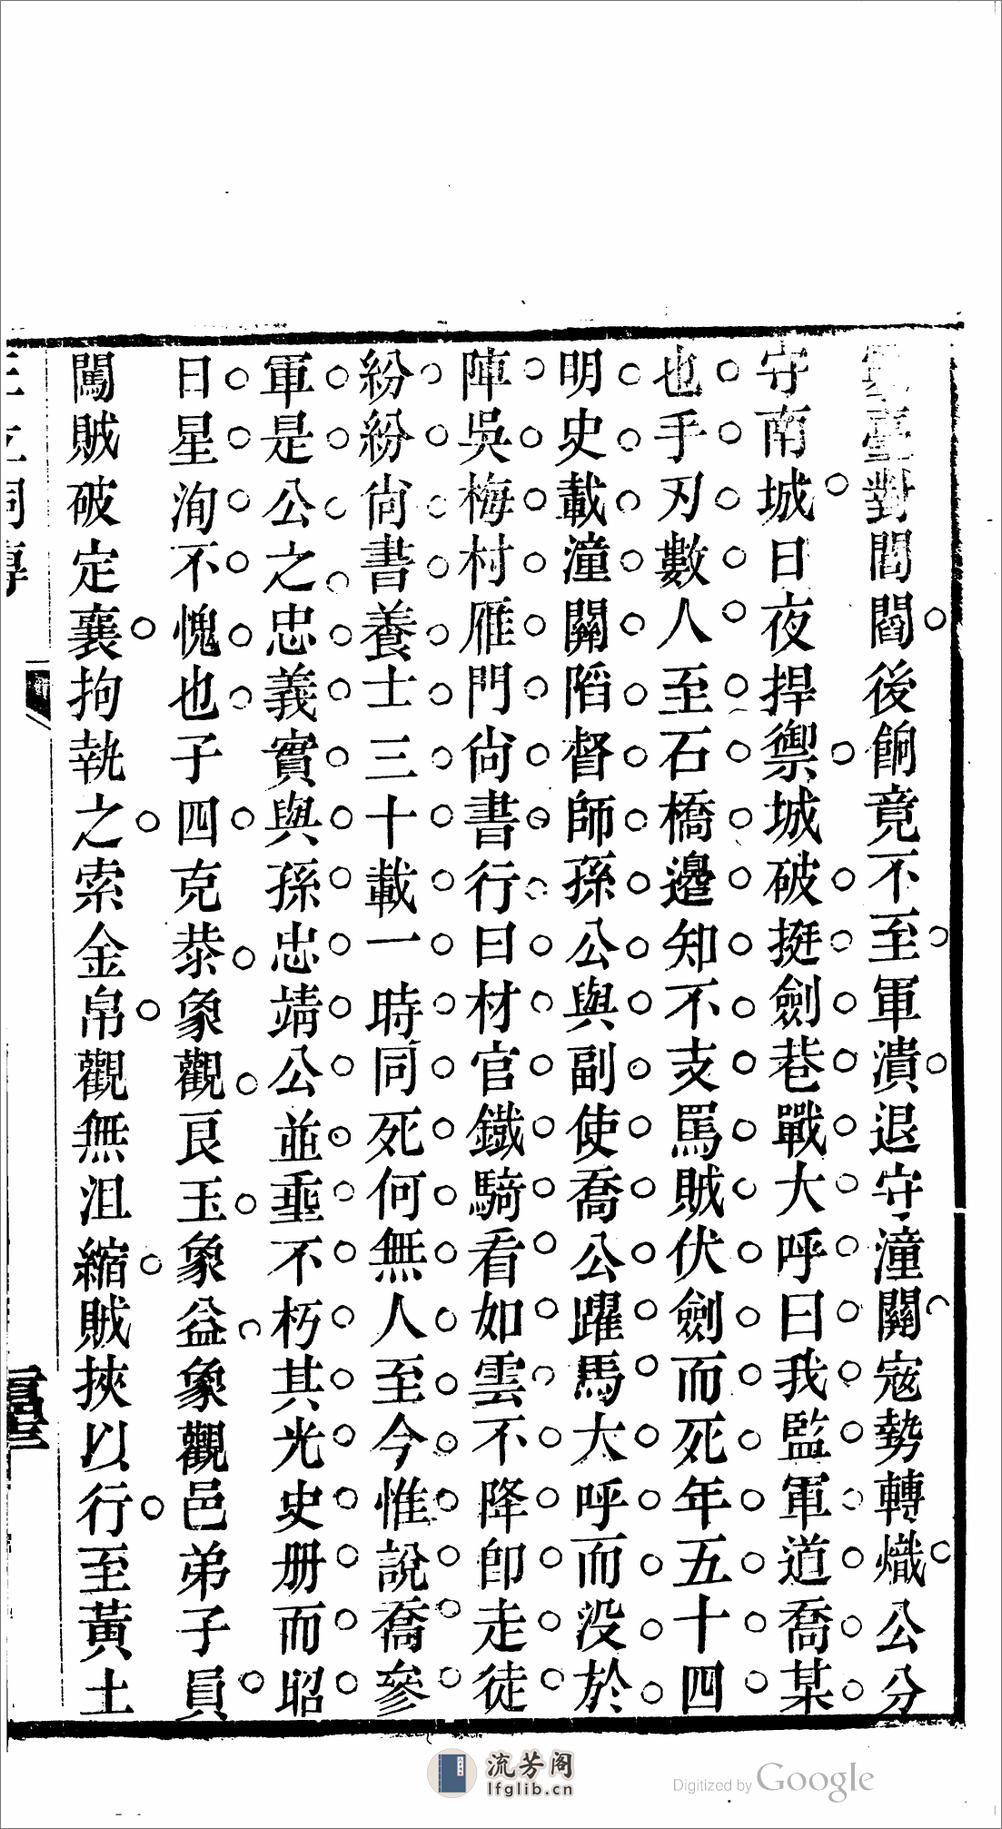 臺對閻閻後餉竟不至軍潰退守潼關寇勢轉熾公分
守南城日夜捍禦城破挺劍巷戰大呼曰我監軍道喬某
也手刃數人至石橋邊知不支罵賊伏劍而死年五十四
明史載潼關陷督師孫公與副使喬公躍馬大呼而没於
陣吳梅村雁門尚書行曰材官鐵騎看如雲不降卽走徒
紛紛尙書養士三十載一時同死何無人至今惟說喬參
軍是公之忠義實與孫忠靖公並垂不朽其光史册而昭
日星洵不愧也子四克恭象觀艮玉象益象觀邑弟子員
闖賊破定襄拘執之索金帛觀無沮縮賊挾以行至黃土
流芳阁
lfglib.cn
Digitized by Google